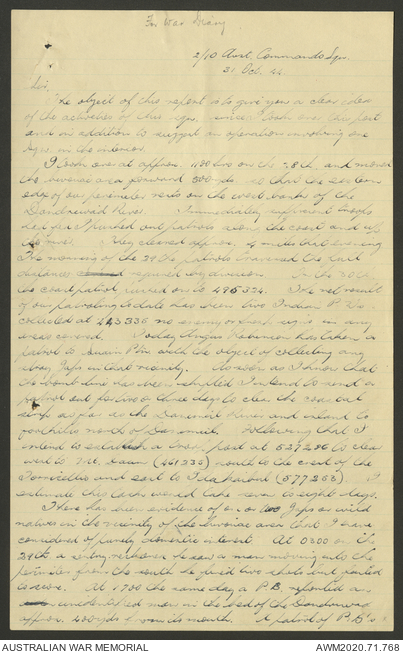 For War Diary
2/10 Aust. Commando Sqn.
31 Oct. 44
Sir,
The object of this report is to give you a clear idea
of the activities of this sqn. since I took over this post
and in addition to suggest an operation involving one
sqn. in the interior.
I took over at approx. 1100 hrs on the 28th and moved
the area forward 500 yds so that the eastern
edge of our perimeter rests on the west banks of the
Dandriwad River. Immediately sufficient troops
I pushed out patrols along the coast and up
the river. They cleared approx. miles that evening
The morning of the 29th the patrols traversed the full
distances required by division. On the 30th
the coast patrol pushed on to 495374. The net result
of our patrolling to date has been two Indian P.W's
collected at 443336 no enemy or fresh signs in any
areas covered. Today Angus Robinson has taken a
patrol to with the object of collecting any
stray Japs in that vicinity. As soon as I know that
the bomb line has been adjusted I intend to send a
patrol out for two or three days to clear the coastal
strip as far as the Danmul River and inland to
foothills north of Danmul. Following that I
intend to establish a post at 527296 to clear
west to Mt. (461335) south to the crest of the
Torricellis and east to (577253). I
estimate this task would take seven to eight days.
There has been evidence of one or two Japs or wild
natives in the vicinity of the area that I have
considered of purely domestic interest. At 0300 on the
29th a sentry he saw a man moving into the
perimeter from the south he fired two shots but failed
to score. At 1700 the same day a P.B. reported an
unidentified man in the bed of the Dandriwad
approx. 400 yds from its mouth. A patrol of P.B's
AUSTRALIAN WAR MEMORIAL
AWM2020.71.768